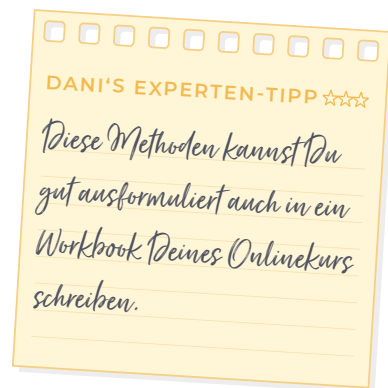 DANI‘S EXPERTEN-TIPP
Diese Methoden kannst Du
gut ausformuliert auch in ein
Workbook Deines Onlinekurs
schreiben.